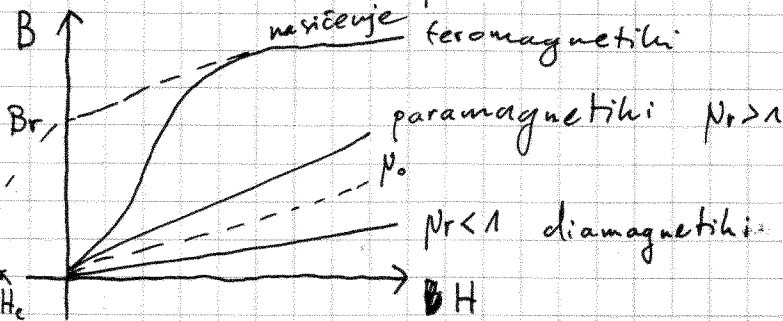 B
nasičenje
feromagnetiki
Br
paramagnetiki μr>1
μ₀
μr<1 diamagnetiki
H
Hc